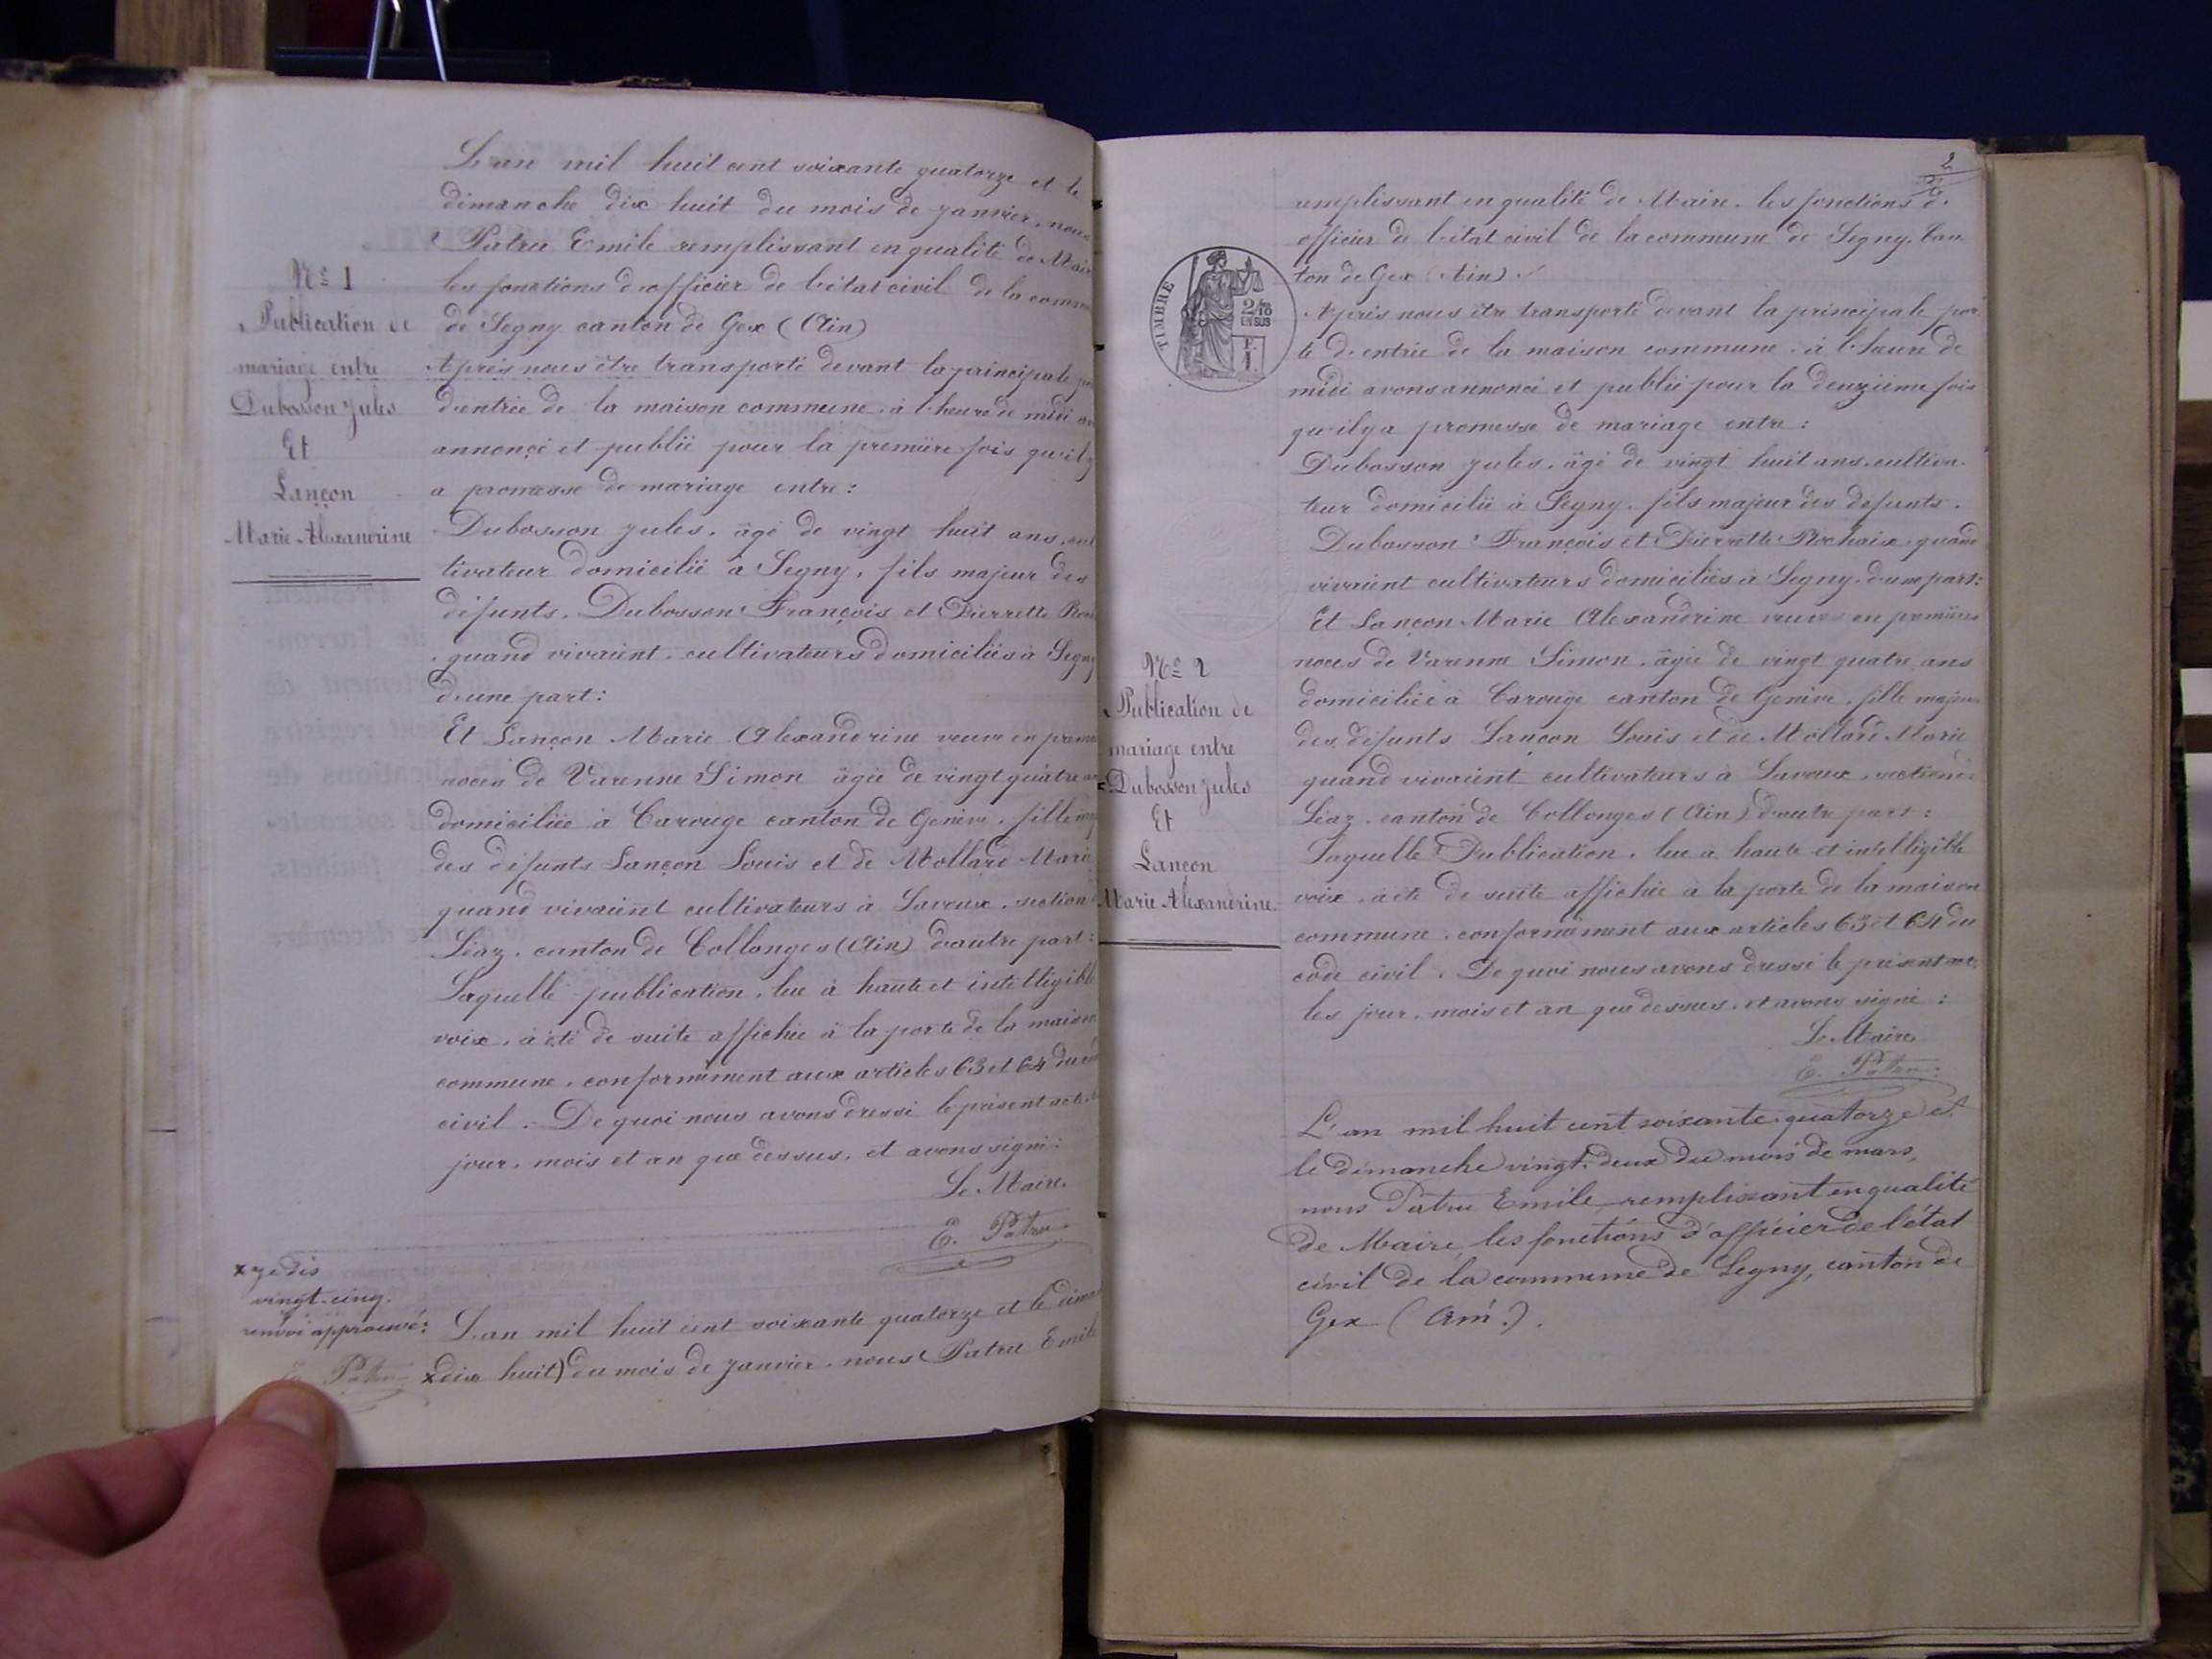 L'an mil huit cent soixante quatorze et le
dimanche dix huit du mois de janvier, nous
Patru Emile remplissant en qualité de Mair
les fonctions d'officier de l'état civil de la comm
de Segny canton de Gex (Ain)
Après nous être transporté devant la principale
d'entrée de la maison commune à l'heure de midi
annoncé et publié pour la première fois qu'il y
a promesse de mariage entre :
Dubosson Jules, âgé de vingt huit ans, cul
tivateur domicilié à Segny, fils majeur des
défunts, Dubosson François et Pierrette
quand vivaient cultivateurs domiciliés à Segny
d'une part :
Et Lançon Marie Alexandrine veuve en prem
noces de Varenne Simon âgée de vingt quatre
domiciliée à Carouge canton de Genève, fille
des défunts Lançon Louis et de Mollard Marie
quand vivaient cultivateurs à Lavoux, section
Léaz, canton de Collonges (Ain) d'autre part :
Laquelle publication, lue à haute et intelligible
voix, a été de suite affichée à la porte de la maison
commune, conformément aux articles 63 et 64 du
civil. De quoi nous avons dressé le présent acte
jour, mois et an que dessus, et avons signé :
Le Maire
E. Patru
L'an mil huit cent soixante quatorze et le dima
x dix huit) du mois de janvier, nous Patru Emile
Nº 1
Publication de
mariage entre
Dubosson Jules
Et
Lançon
Marie Alexandrine
x je dis
vingt-cinq.
renvoi approuvé :
E. Patru
2
remplissant en qualité de Maire, les fonctions d'
officier de l'état civil de la commune de Segny, Can
ton de Gex (Ain)
Après nous être transporté devant la principale por
te d'entrée de la maison commune à l'heure de
midi avons annoncé et publié pour la deuxième fois
qu'il y a promesse de mariage entre :
Dubosson Jules, âgé de vingt huit ans, cultiva
teur domicilié à Segny, fils majeur des défunts
Dubosson François et Pierrette Rochaix quand
vivaient cultivateurs domiciliés à Segny, d'une part :
Et Lançon Marie Alexandrine veuve en premières
noces de Varenne Simon, âgée de vingt quatre ans
domiciliée à Carouge canton de Genève, fille majeu
des défunts Lançon Louis et de Mollard Marie
quand vivaient cultivateurs à Lavoux, section de
Léaz, canton de Collonges (Ain) d'autre part :
Laquelle Publication, lue à haute et intelligible
voix, a été de suite affichée à la porte de la maison
commune, conformément aux articles 63 et 64 du
code civil. De quoi nous avons dressé le présent acte
les jour, mois et an que dessus, et avons signé :
Le Maire
E. Patru
L'an mil huit cent soixante-quatorze et
le dimanche vingt-deux du mois de mars,
nous Patru Emile, remplissant en qualité
de Maire, les fonctions d'officier de l'état
civil de la commune de Segny, canton de
Gex (Ain).
TIMBRE
2/10
EN SUS
F.
1.
Nº 2
Publication de
mariage entre
Dubosson Jules
Et
Lançon
Marie Alexandrine